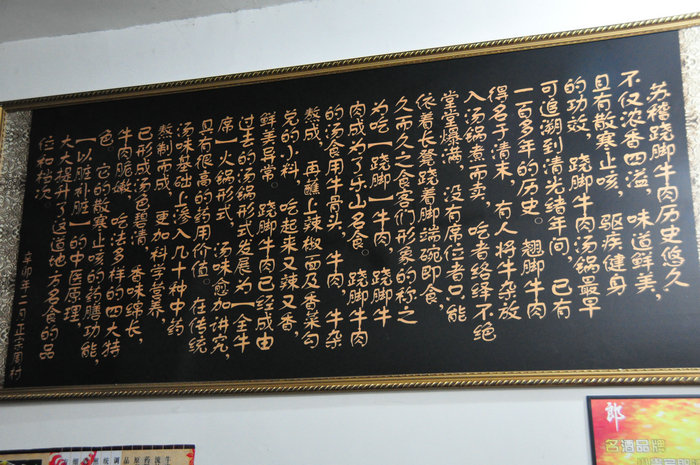 苏稽跷脚牛肉历史悠久
不仅浓香四溢，味道鲜美，
且有散寒止咳，驱疾健身
的功效。跷脚牛肉汤锅最早
可追溯到清光绪年间，已有
一百多年的历史。翘脚牛肉
得名于清末，有人将牛杂放
入汤锅煮而卖，吃者络绎不绝
堂堂爆满，没有席位者只能
依着长凳跷着脚端碗即食，
久而久之食客们形象的称之
为吃【跷脚】牛肉。跷脚牛
肉成为了乐山名食。跷脚牛肉
的汤食用牛骨头，牛肉，牛杂
熬成，再蘸上辣椒面及香菜勾
兑的小料，吃起来又辣又香，
鲜美异常。跷脚牛肉已经成由
过去的汤锅形式发展为【全牛
席】火锅形式，汤味愈加讲究，
具有很高的药用价值。在传统
汤味基础上渗入几十种中药
熬制而成，更加科学营养，
已形成汤色碧清，香味绵长，
牛肉脆嫩，吃法多样的四大特
色。它的散寒止咳的药膳功能，
【以脏补脏】的中医原理，
大大提升了这道地方名食的品
位和档次。
辛卯年二月正宗周村
郎
名酒品牌